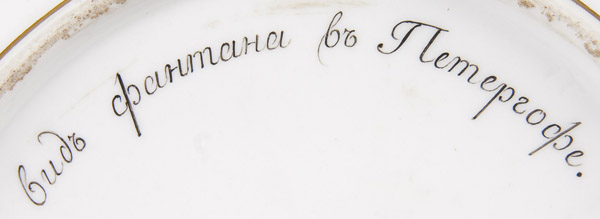 видъ фантана въ Петергофе.